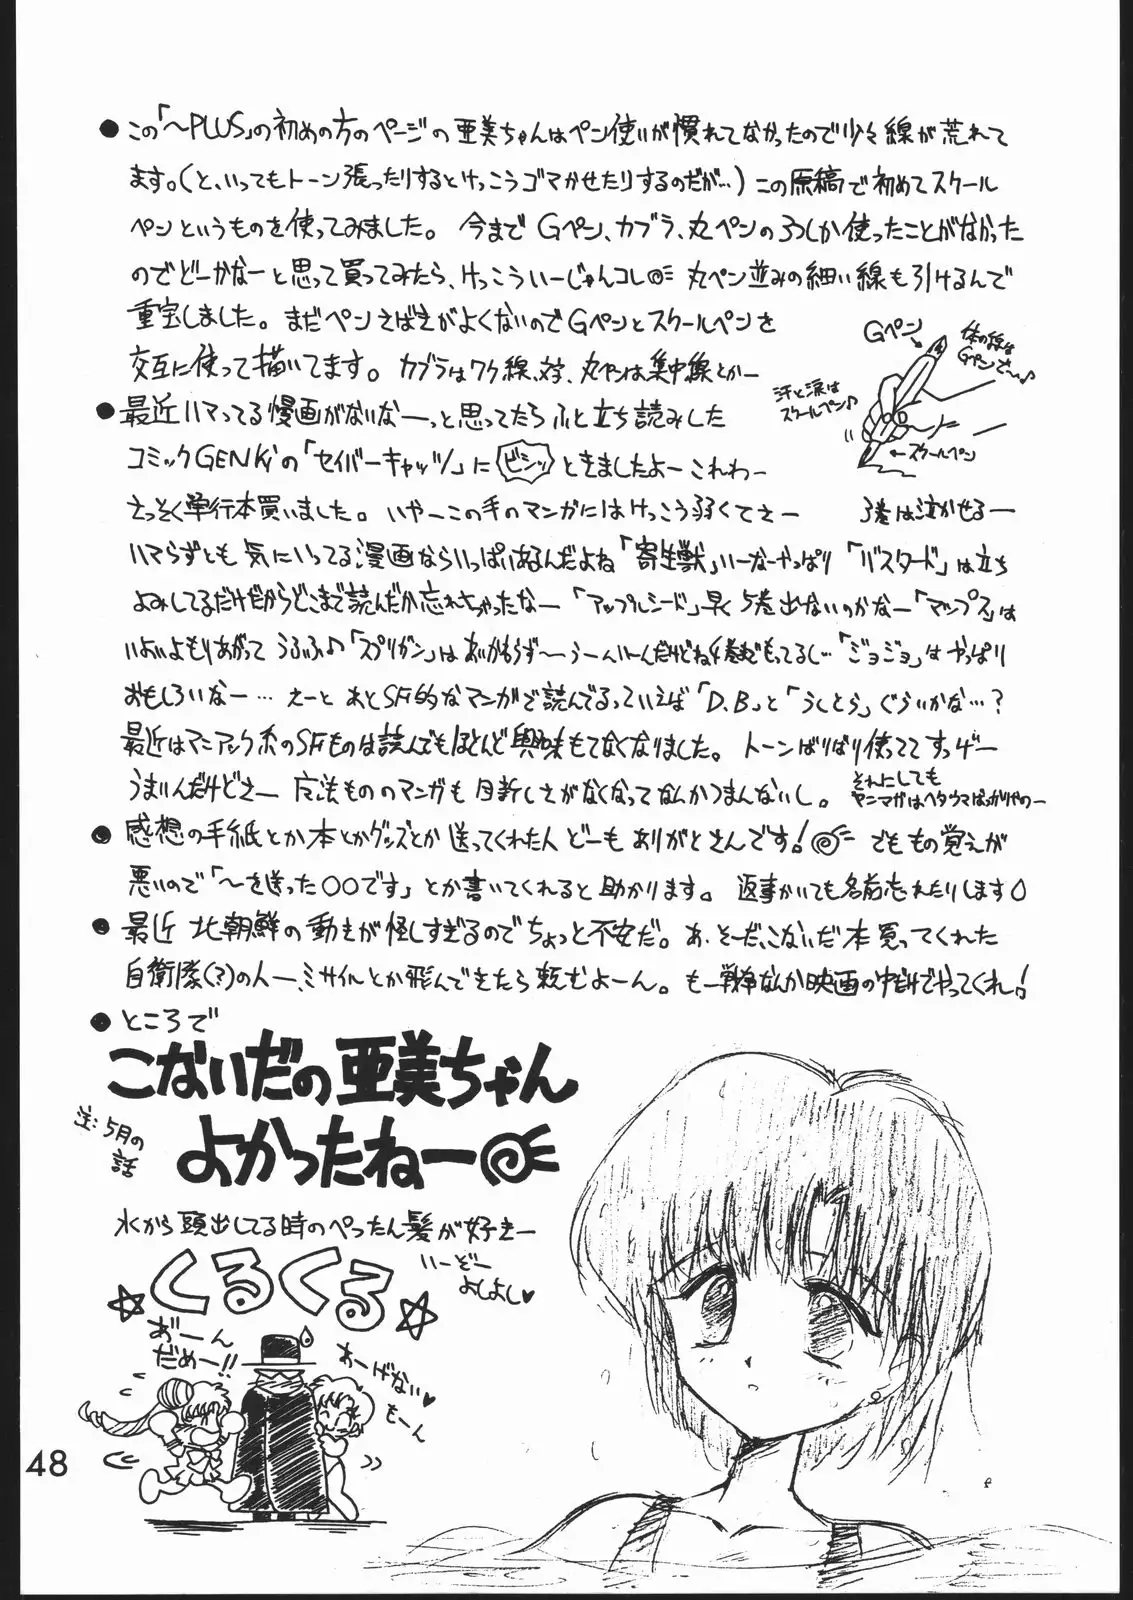 ●この「〜PLUS」の初めの方のページの亜美ちゃんはペン使いが慣れてなかったので少々線が荒れて
ます。(と、いってもトーン張ったりするとけっこうゴマかせたりするのだが…)この原稿で初めてスクール
ペンというものを使ってみました。今までGペン、カブラ、丸ペンの3つしか使ったことがなかった
のでどーかなーと思って買ってみたら、けっこういーじゃんコレ 丸ペン並みの細い線も引けるんで
重宝しました。まだペンさばきがよくないのでGペンとスクールペンを
交互に使って描いてます。カブラはワク線、対、丸ペンは集中線とかー
Gペン
体の線は
Gペンで…♪
汗と涙は
スクールペン♪
←スクールペン
●最近ハマってる漫画がないなーっと思ってたらふと立ち読みした
コミックGENKiの「セイバーキャッツ」にビシッときましたよーこれわー
さっそく単行本買いました。いやーこの手のマンガにはけっこう弱くてさー 3巻は泣かせるー
ハマらずとも気にいってる漫画ならいっぱいあるんだよね「寄生獣」いーなーやっぱり「バスタード」は立ち
よみしてるだけだからどこまで読んだか忘れちゃったなー「アップルシード」早く5巻出ないのかなー「マップス」は
いよいよもりあがって うふふ♪「スプリガン」はあいかわらず〜うーんいーんだけどね 巻までもってるし…「ジョジョ」はやっぱり
おもしろいなー…えーと あとSF的なマンガで読んでるっていえば「D.B」と「うしとら」ぐらいかな…?
最近はマニアック系のSFものは読んでもほとんど興味もてなくなりました。トーンばりばり使ててすっげー
うまいんだけどさー 魔法もののマンガも目新しさがなくなってなんかつまんないし。
それにしても
ヤンマガはヘタウマばっかりやのー
●感想の手紙とか本とかグッズとか送ってくれた人どーもありがとさんです! でももの覚えが
悪いので「〜を送った○○です」とか書いてくれると助かります。返事かいても名前忘れたりします
●最近北朝鮮の動きが怪しすぎるのでちょっと不安だ。あ、そーだ、こないだ本買ってくれた
自衛隊(?)の人ー、ミサイルとか飛んできたら頼むよーん。もー戦争なんか映画の中だけでやってくれ!
●ところで
こないだの亜美ちゃん
よかったねー
注:5月の
話
水から頭出してる時のぺったん髪が好きー
くるくる
いーどー
よしよし♥
あ゛ーん
だめー!!
あーげない♥
もーん
48